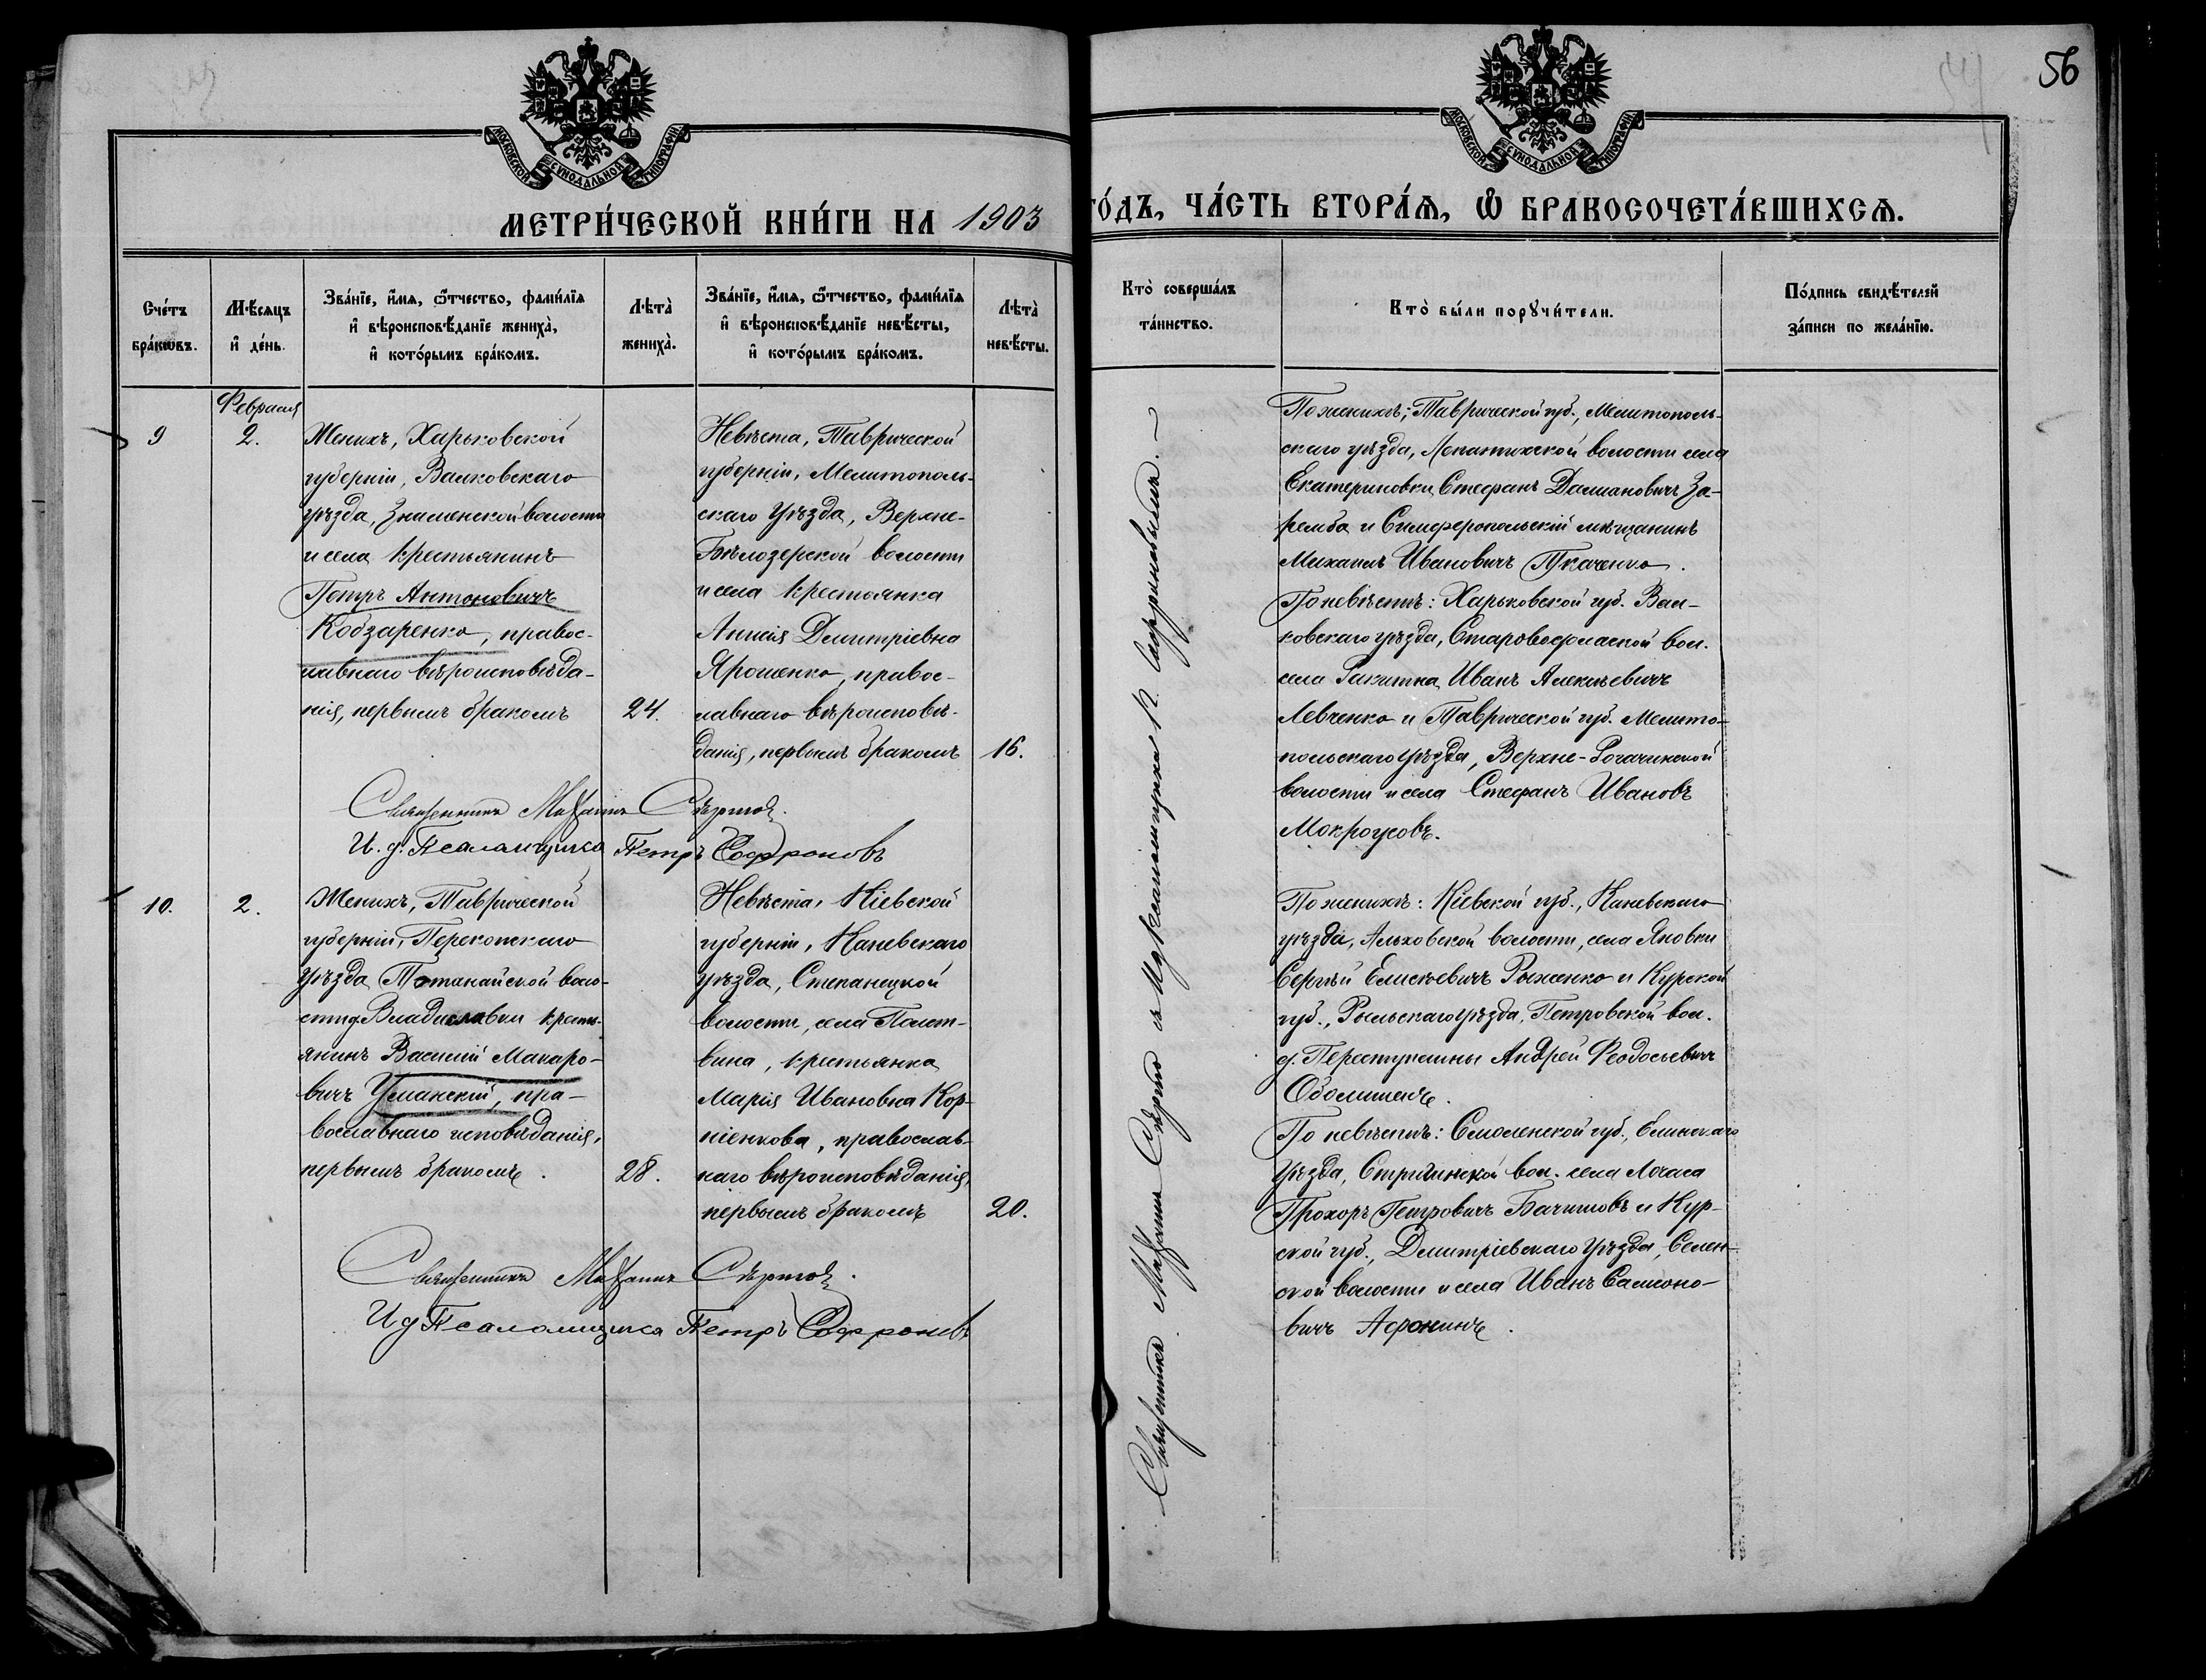 56
МОСКОВСКОЙ СѴНОДАЛЬНОЙ ТИПОГРАФІИ
МОСКОВСКОЙ СѴНОДАЛЬНОЙ ТИПОГРАФІИ
МЕТРИ́ЧЕСКОЙ КНИ́ГИ НА 1903
ГО́ДЪ, ЧА́СТЬ ВТОРА́Я, Ѡ БРАКОСОЧЕТА́ВШИХСЯ.
Сче́тъ
бра́кѡвъ.
Мѣ́сяцъ
и҆ де́нь.
Зва́нїе, и҆́мя, ѻ҆́тчество, фами́лїя
и҆ вѣроисповѣ́данїе жениха̀,
и҆ кото́рымъ бра́комъ.
Лѣта̀
жениха̀.
Зва́нїе, и҆́мя, ѻ҆́тчество, фами́лїя
и҆ вѣроисповѣ́данїе невѣ́сты,
и҆ кото́рымъ бра́комъ.
Лѣта̀
невѣ́сты.
Кто̀ соверша́лъ
та́инство.
Кто̀ бы́ли порꙋчи́тели.
По́дпись свидѣ́телей
за́писи по жела́нїю.
Февраля
9
2.
Женихъ, Харьковской
губерніи, Валковскаго
уѣзда, Знаменской волости
и села крестьянинъ
Петръ Антоновичъ
Кобзаренко, правос-
лавнаго вѣроисповѣда-
нія, первымъ бракомъ
24.
Невѣста, Таврической
губерніи, Мелитополь-
скаго Уѣзда, Верхне-
Бѣлозерской волости
и села крестьянка
Анисія Димитріевна
Ярошенко, правос-
лавнаго вѣроисповѣ-
данія, первымъ бракомъ
16.
Священникъ
И. д. Псаломщика Петръ Софроновъ
По женихѣ; Таврической губ., Мелитополь-
скаго уѣзда, Лепатихской волости села
Екатериновки Стефанъ Даміановичъ За-
ремба и Симферопольскій мѣщанинъ
Михаилъ Ивановичъ Ткаченко.
По невѣстѣ: Харьковской губ. Вал-
ковскаго уѣзда, вол.
села Ракитна Иванъ Алексѣевичъ
Левченко и Таврической губ. Мелито-
польскаго уѣзда, Верхне-Рогачинской
волости и села Стефанъ Ивановъ
Мокроусовъ.
Священникъ съ Псаломщика П. Софроновымъ.
10.
2.
Женихъ, Таврической
губерніи, Перекопскаго
уѣзда Тотанайской воло-
сти д. Владиславки кресть-
янинъ Василій Макаро-
вичъ Уманскій, пра-
вославнаго исповѣданія,
первымъ бракомъ.
28.
Невѣста, Кіевской
губерніи, Каневскаго
уѣзда, Степанецкой
волости, села Полст-
вина, крестьянка
Марія Ивановна Кор-
ніенкова, православ-
наго вѣроисповѣданія,
первымъ бракомъ
20.
Священникъ
И д Псаломщика Петръ Софроновъ
По женихѣ: Кіевской губ., Каневскаго
уѣзда, волости, села Яновки
Сергѣй Елисѣевичъ Рыженко и Курской
губ., Рыльскаго уѣзда, Петровской вол.
д. Андрей Феодосьевичъ
По невѣстѣ: Смоленской губ., Ельнскаго
Уѣзда, вол. села
Прохоръ Петровичъ и Кур-
ской губ., Димитріевскаго Уѣзда, Селен-
ской волости и села Иванъ
вичъ Афонинъ.